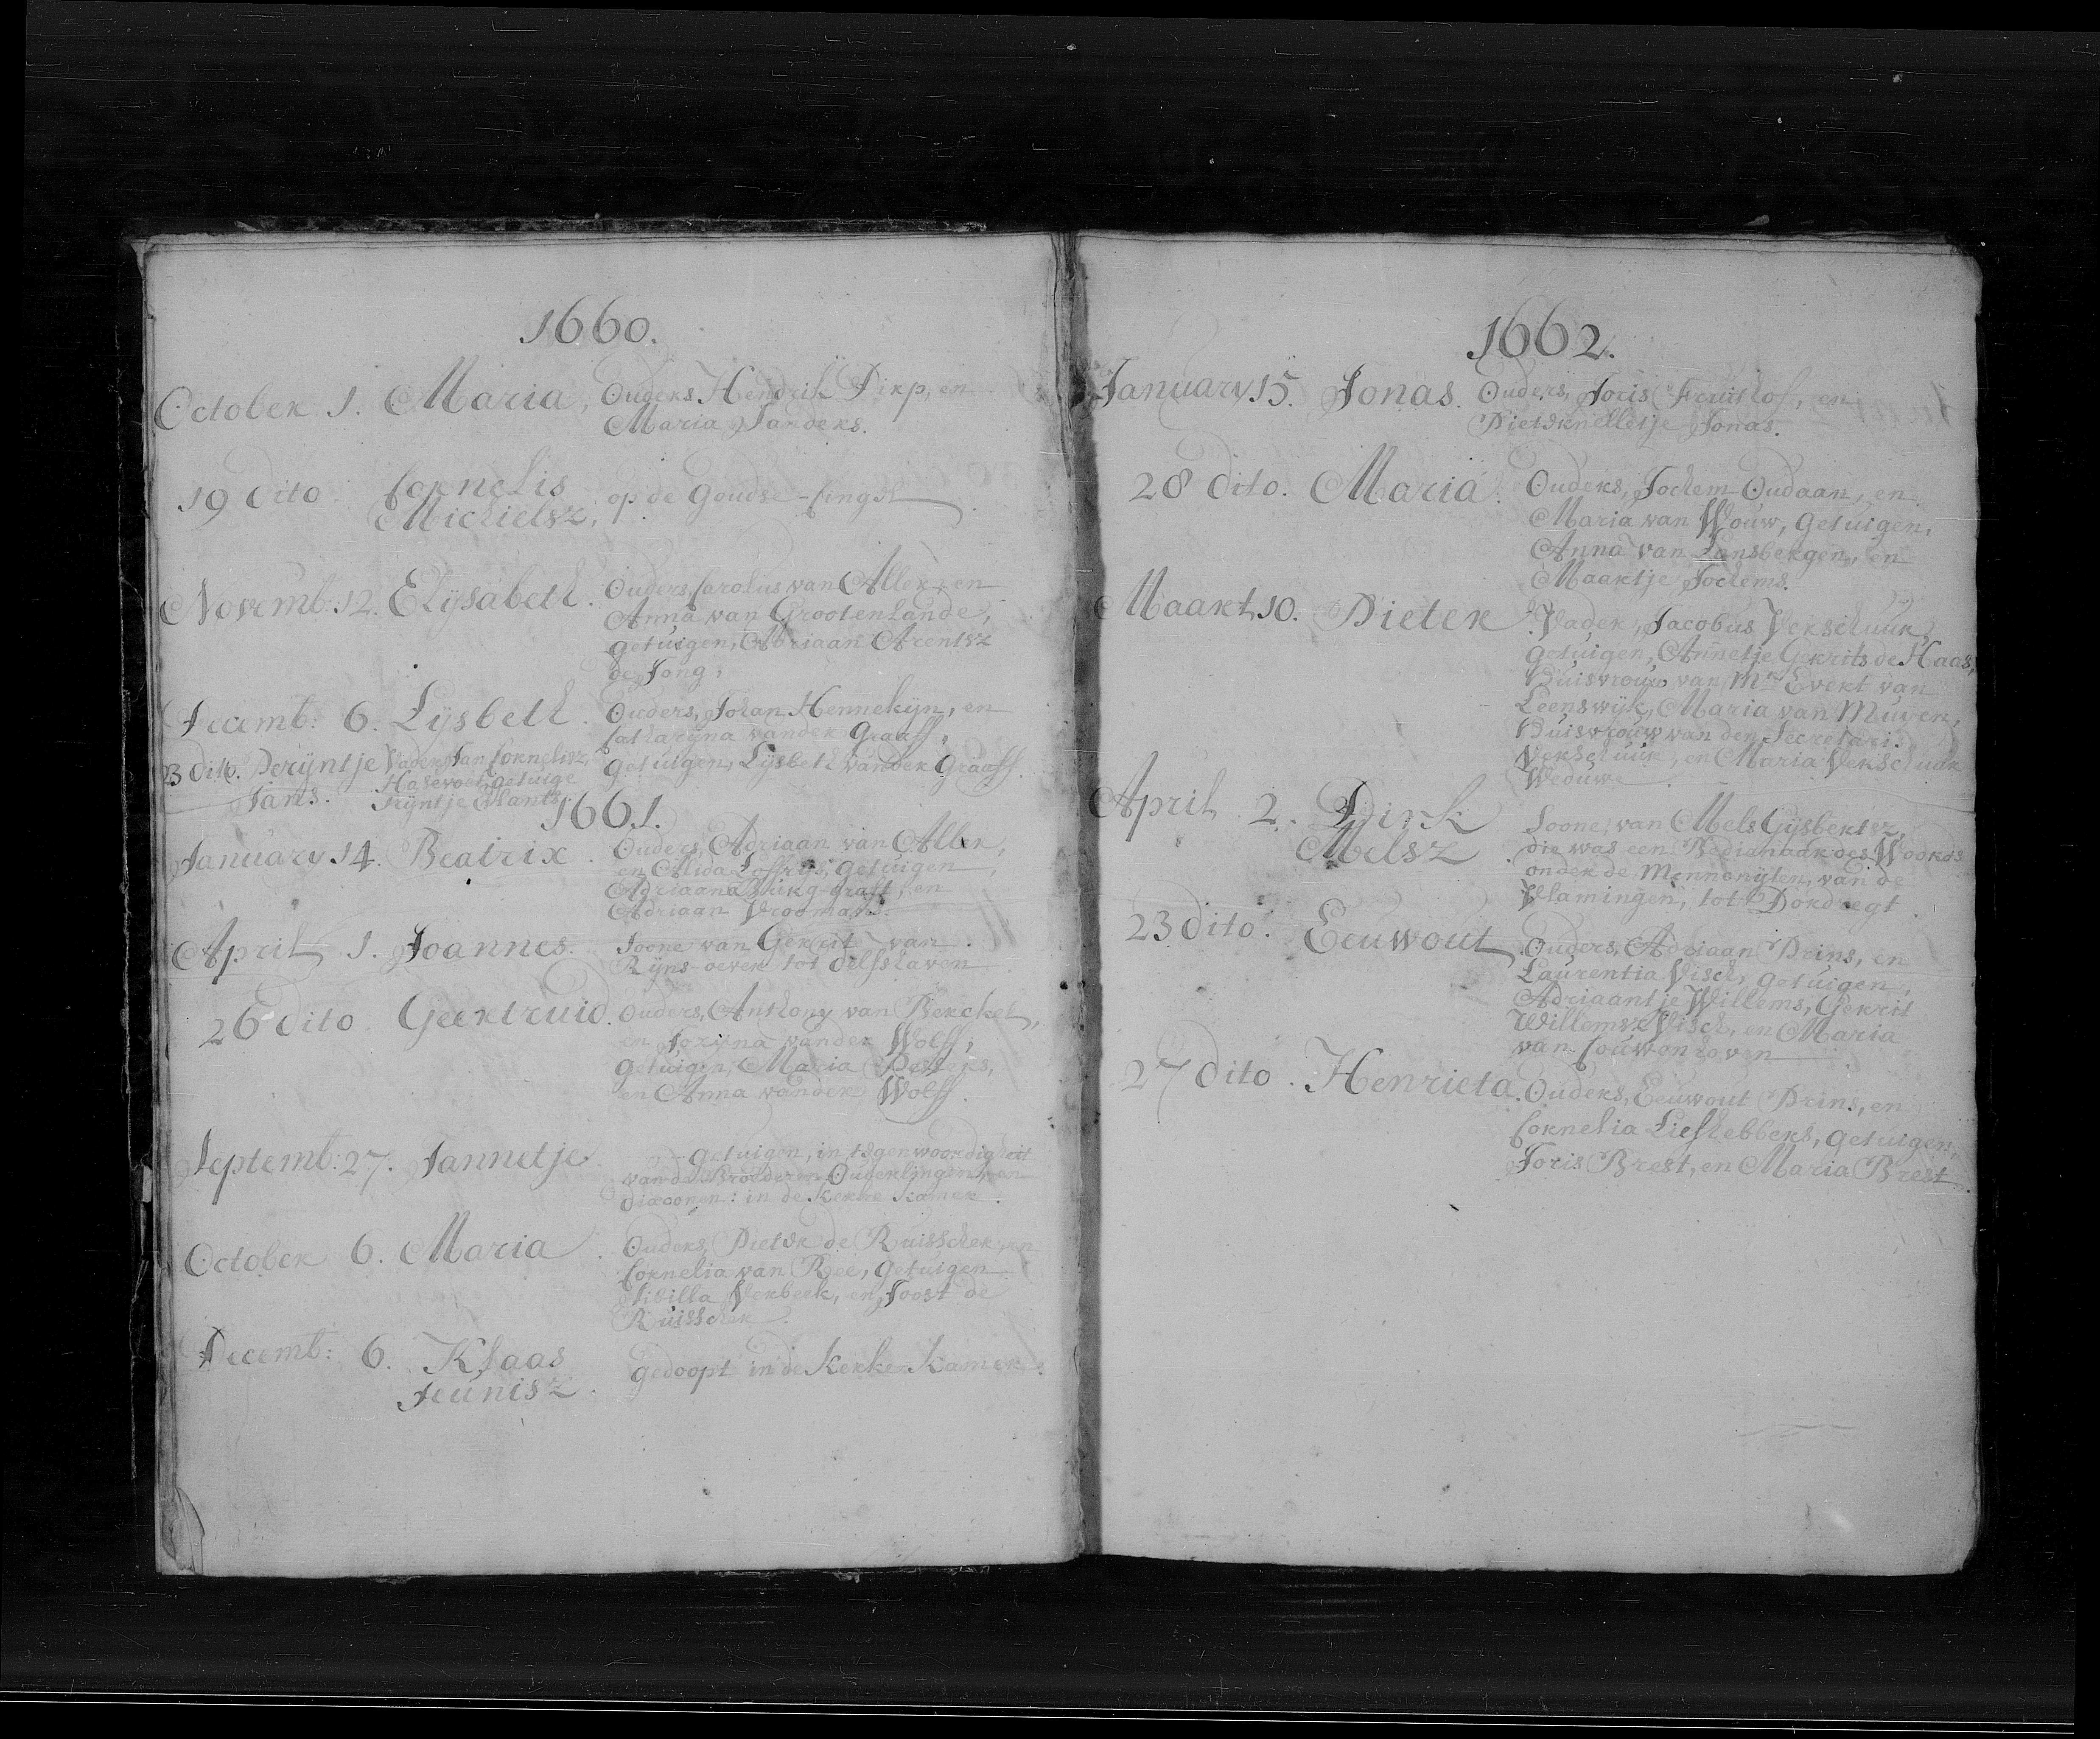 1660.
October 1. Maria, Ouders, Hendrik Dirp, en
Maria Sanders.
19 dito Cornelis
Michielsz, op de Goudse-singel
Novemb: 12. Elijsabeth. Ouders, Carolus van Aller, en
Anna van Grootenlande,
getuigen, Adriaan Arentsz
de Jong,
Decemb: 6. Lijsbeth. Ouders, Johan Hennekijn, en
Catharijna vander Graaff,
getuigen, Lijsbeth vander Graaff.
dito. Perijntje Vader, Jan Cornelisz,
Jans. getuige
Trijntje
1661.
January 14. Beatrix. Ouders, Adriaan van Aller,
en Alida getuigen
Adriaana Burg-graft, en
Adriaan Vroomans.
April 1. Joannes. Soone van Gerrit van
Rijns-oever tot delfshaven
26 dito Geertruid. Ouders, Anthony van Berckel,
en Jorijna vander Wolff,
getuigen, Maria Pesters,
en Anna vander Wolff.
Septemb: 27. Jannetje getuigen, in tegenwoordigheit
van de Broederen Ouderlingen, en
diaconen: in de Kerke kamer.
October 6. Maria. Ouders, Pieter de Ruisscher, en
Cornelia van Ree, getuigen
Sibilla Verbeek, en Joost de
Ruisscher.
Decemb: 6. Klaas
Teunisz. gedoopt in de Kerke Kamer.
1662.
January 15. Jonas. Ouders, Joris Fruithof, en
Pieternelletje Jonas.
28 dito. Maria. Ouders, Jochem Oudaan, en
Maria van Wouw, getuigen,
Anna van Lansbergen, en
Maartje Jochems.
Maart 10. Pieter. Vader, Jacobus Verschuur,
getuigen, Annetje Gerrits de Haas,
Huisvrouw van Mr Evert van
Leenswijk, Maria van Muijen,
Huisvrouw van den Secretari.
Verschuur, en Maria Verschuur
Weduwe.
April 2. Dirk
Melsz. Soone, van Mels Gijsbertsz,
die was een Bedienaar des Woords
onder de Mennonyten, van de
Vlamingen, tot Dordregt.
23 dito. Eeuwout. Ouders, Adriaan Prins, en
Laurentia Visch, getuigen,
Adriaantje Willems, Gerrit
Willemsz Visch, en Maria
van Couwenhoven
27 dito. Henrieta. Ouders, Eeuwout Prins, en
Cornelia Liefhebbers, getuigen,
Joris Brest, en Maria Brest.